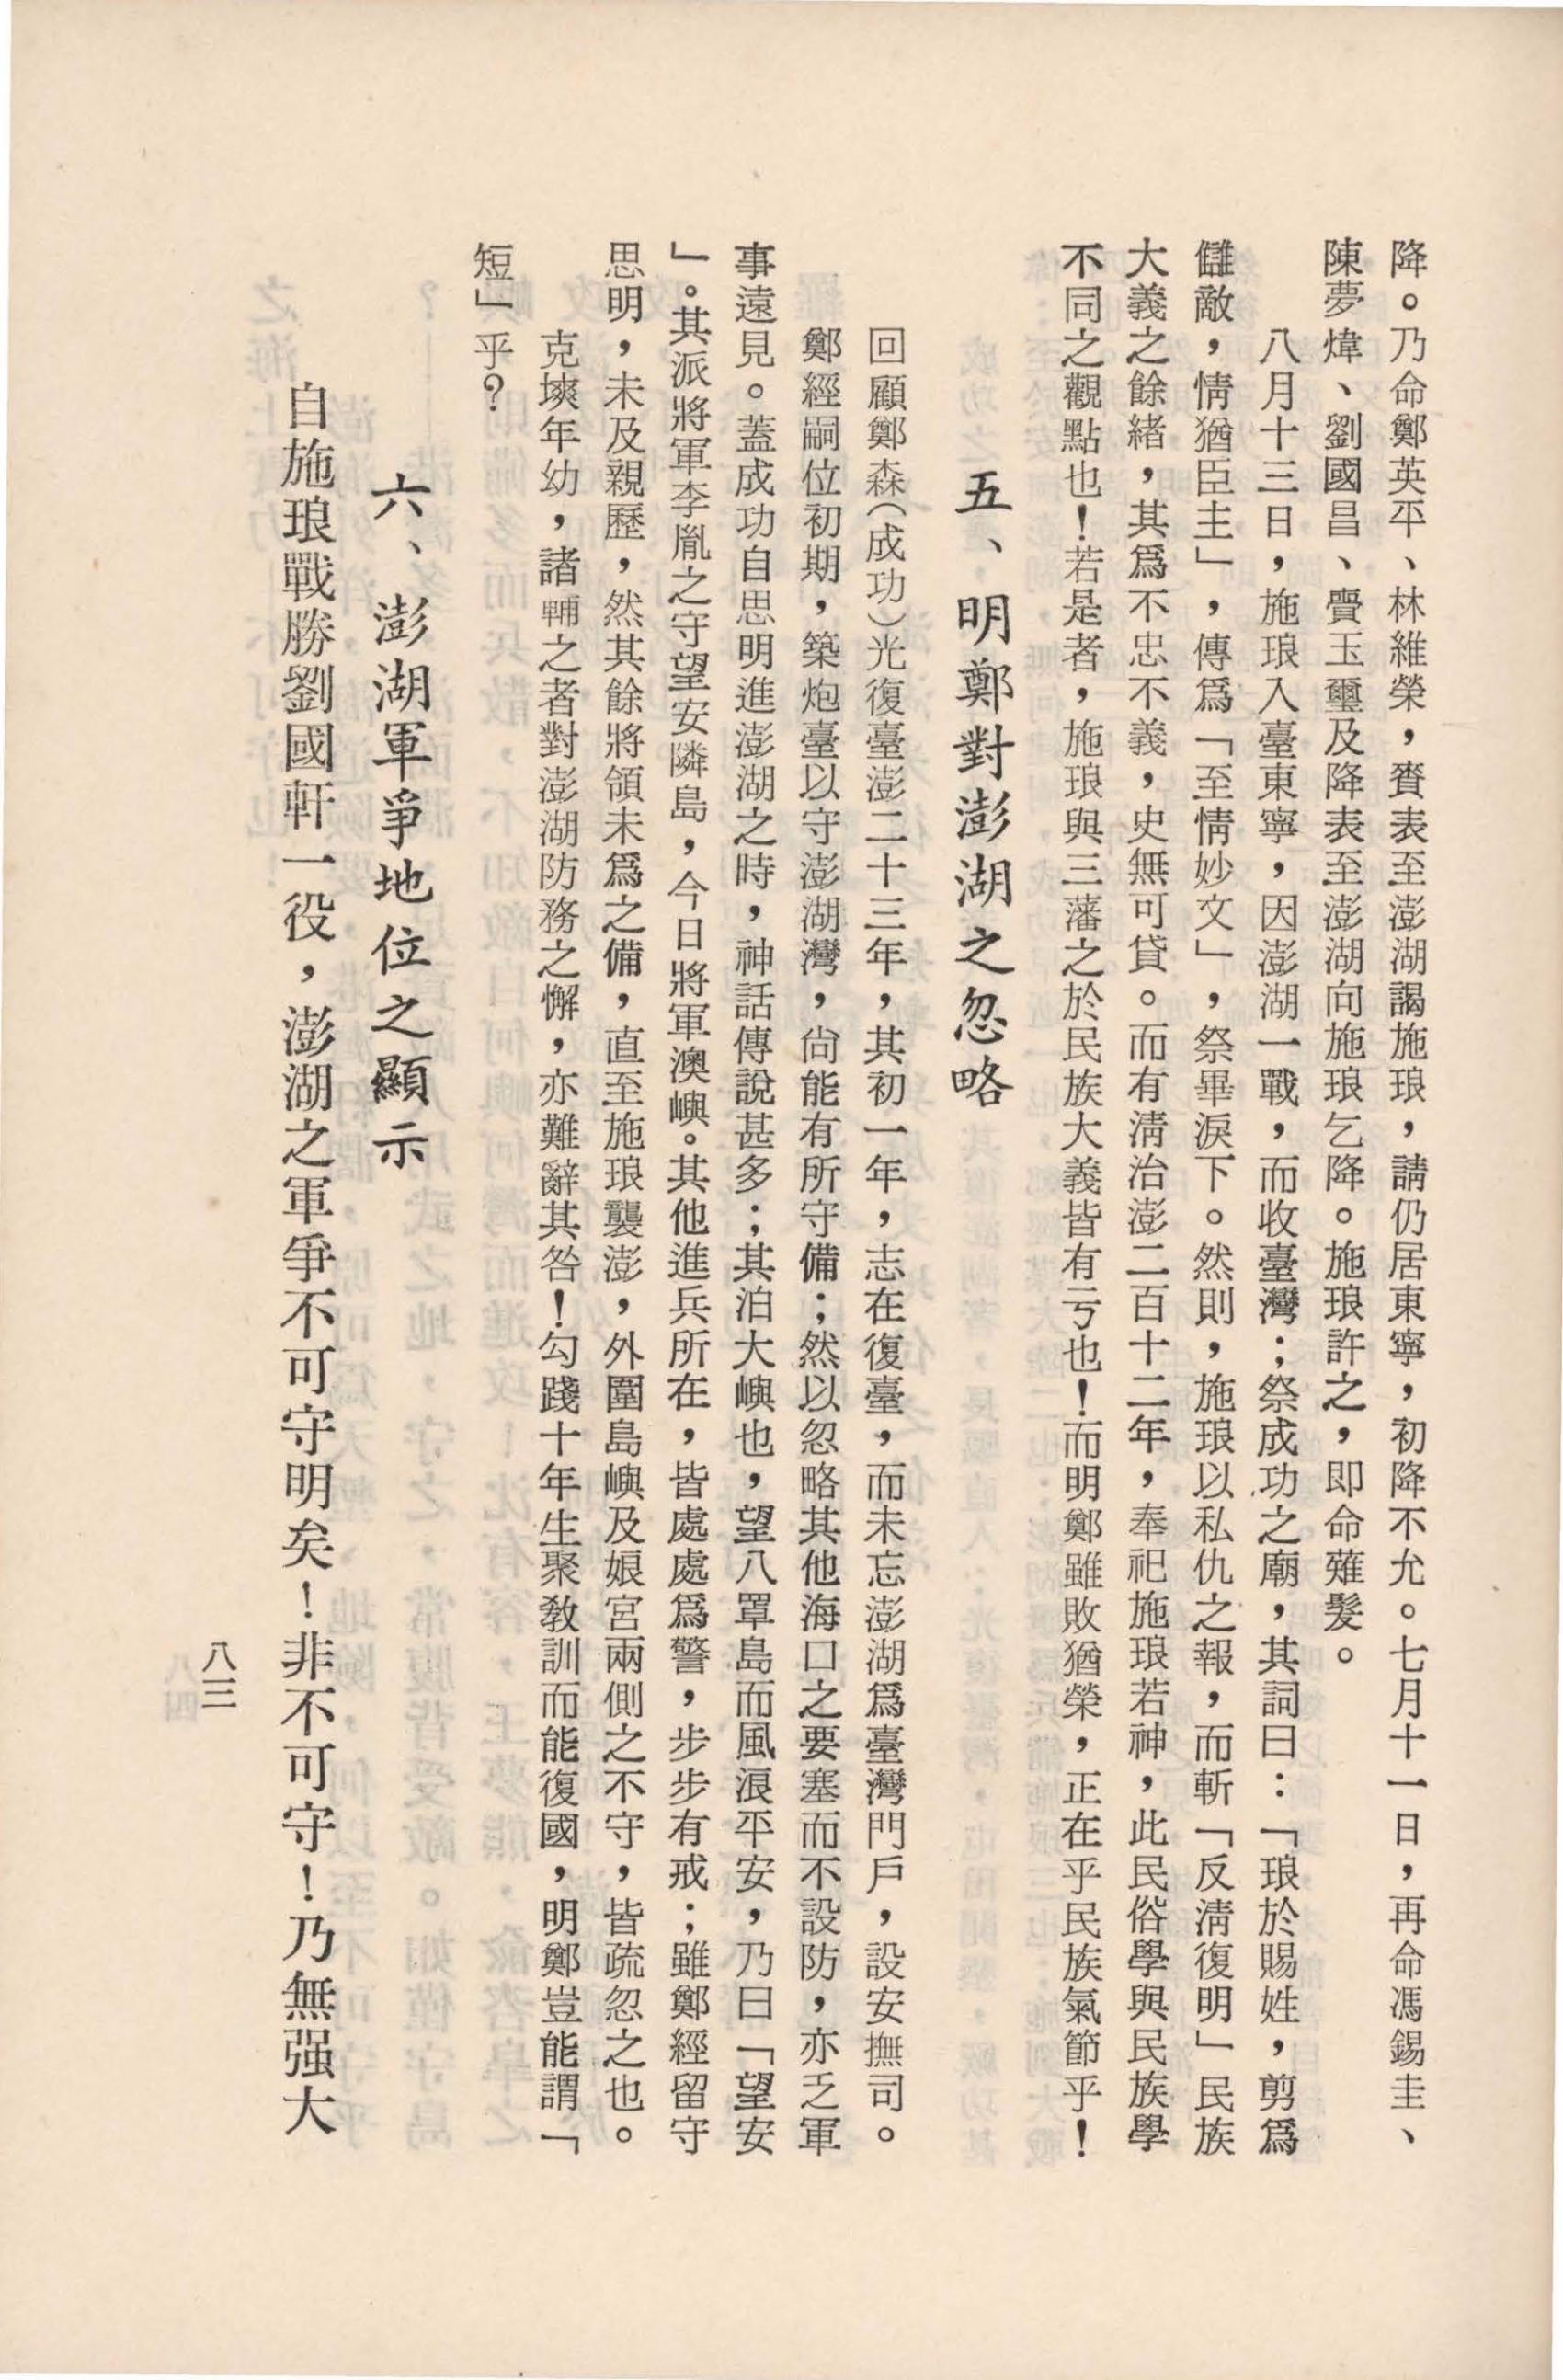 降。乃命鄭英平、林維榮，賫表至澎湖謁施琅，請仍居東寧，初降不允。七月十一日，再命馮錫圭、
陳夢煒、劉國昌、賫玉璽及降表至澎湖向施琅乞降。施琅許之，即命薙髮。
八月十三日，施琅入臺東寧，因澎湖一戰，而收臺灣；祭成功之廟，其詞曰：「琅於賜姓，剪爲
讎敵，情猶臣主」，傳爲「至情妙文」，祭畢淚下。然則，施琅以私仇之報，而斬「反淸復明」民族
大義之餘緒，其爲不忠不義，史無可貸。而有淸治澎二百十二年，奉祀施琅若神，此民俗學與民族學
不同之觀點也！若是者，施琅與三藩之於民族大義皆有亏也！而明鄭雖敗猶榮，正在乎民族氣節乎！
五、明鄭對澎湖之忽略
回顧鄭森（成功）光復臺澎二十三年，其初一年，志在復臺，而未忘澎湖爲臺灣門戶，設安撫司。
鄭經嗣位初期，築炮臺以守澎湖灣，尙能有所守備；然以忽略其他海口之要塞而不設防，亦乏軍
事遠見。蓋成功自思明進澎湖之時，神話傳說甚多；其泊大嶼也，望八罩島而風浪平安，乃曰「望安
」。其派將軍李胤之守望安隣島，今日將軍澳嶼。其他進兵所在，皆處處爲警，步步有戒；雖鄭經留守
思明，未及親歷，然其餘將領未爲之備，直至施琅襲澎，外圍島嶼及娘宮兩側之不守，皆疏忽之也。
克塽年幼，諸輔之者對澎湖防務之懈，亦難辭其咎！勾踐十年生聚教訓而能復國，明鄭豈能謂「
短」乎？
六、澎湖軍爭地位之顯示
自施琅戰勝劉國軒一役，澎湖之軍爭不可守明矣！非不可守！乃無强大
八三